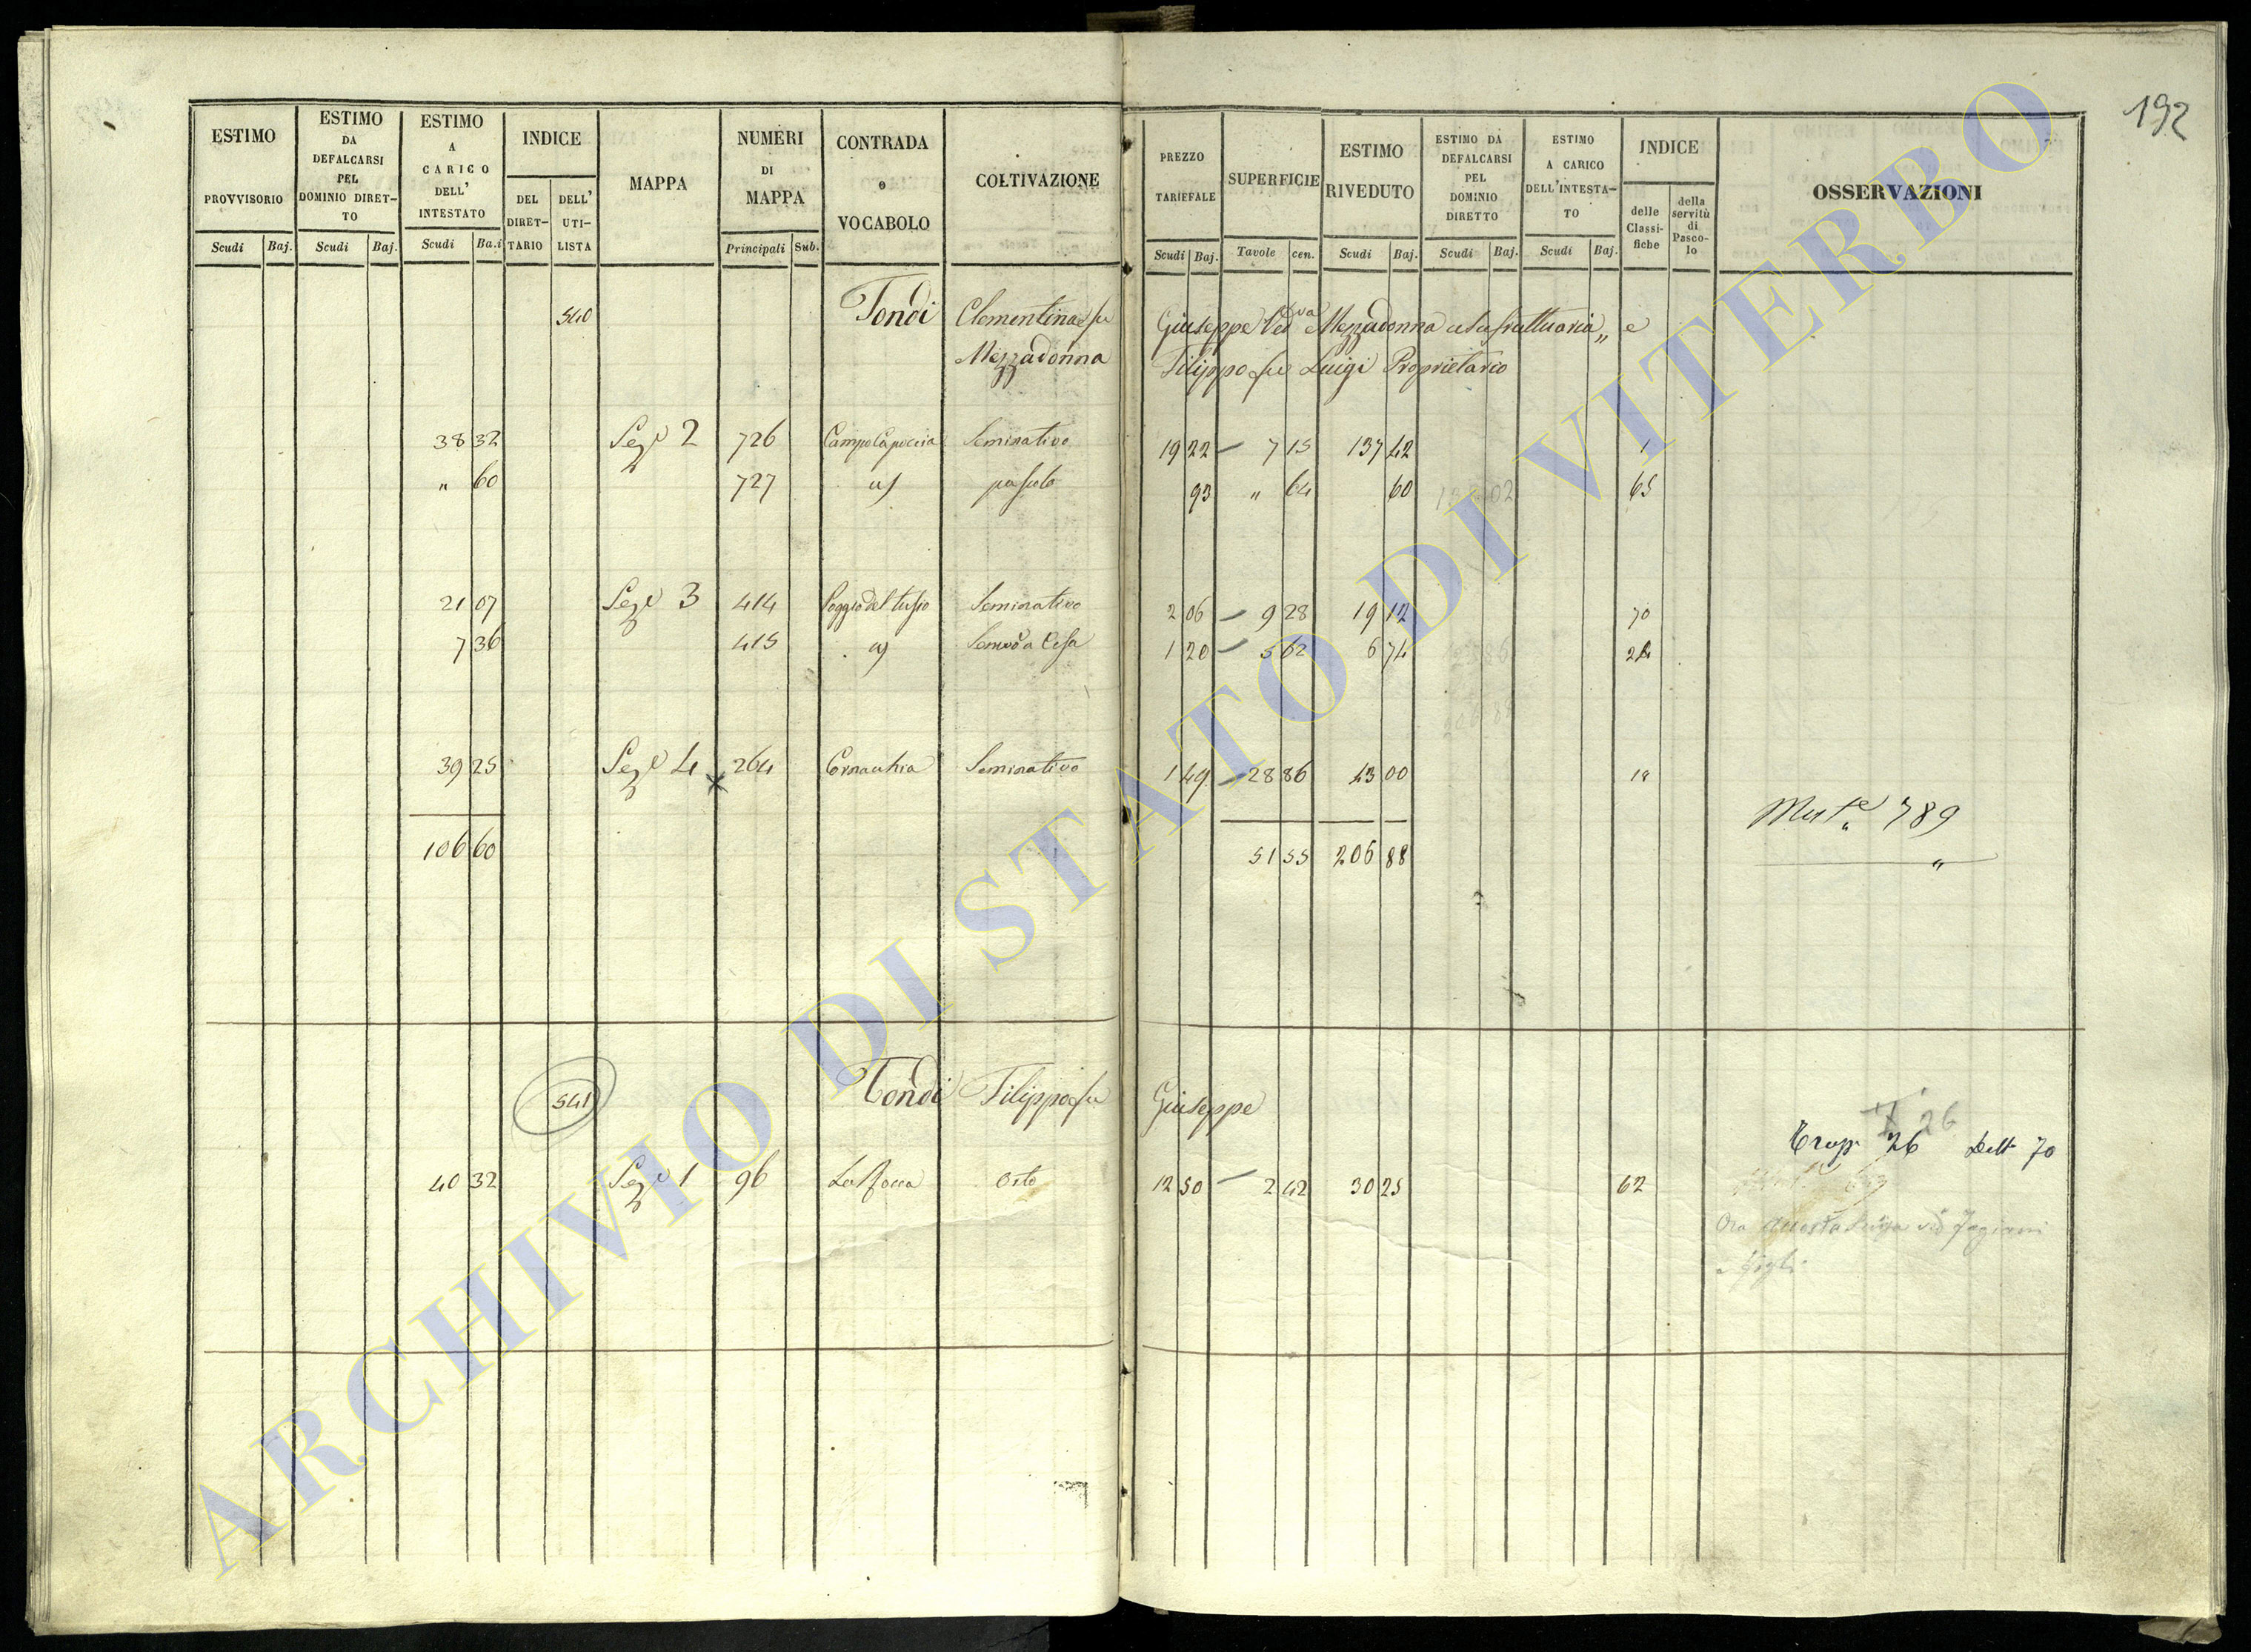 192
ESTIMO PROVVISORIO Scudi Baj.
ESTIMO DA DEFALCARSI PEL DOMINIO DIRET-TO Scudi Baj.
ESTIMO A CARICO DELL' INTESTATO Scudi Ba.i
INDICE DEL DIRET-TARIO DELL' UTI-LISTA
MAPPA
NUMERI DI MAPPA Principali Sub.
CONTRADA o VOCABOLO
COLTIVAZIONE
PREZZO TARIEFALE Scudi Baj.
SUPERFICIE Tavole cen.
ESTIMO RIVEDUTO Scudi Baj.
ESTIMO DA DEFALCARSI PEL DOMINIO DIRETTO Scudi Baj.
ESTIMO A CARICO DELL'INTESTA-TO Scudi Baj.
INDICE delle Classi-fiche della servitù di Pasco-lo
OSSERVAZIONI
540 Tondi Clementina fu Giuseppe Ved va Mezzadonna usufruttuaria „ e
Mezzadonna Filippo fu Luigi Proprietario
38 32 Sez e 2 726 Campo Capoccia Seminativo 19 22 7 15 137 42 1
" 60 727 pascolo 93 " 64 60 65
21 07 Sez e 3 414 Poggio del tufo Seminativo 2 06 9 28 19 12 70
7 36 415 1 20 5 62 6 74 24
39 25 Sez e 4 264 Cornacchia Seminativo 1 49 28 86 43 00 18
Mut e 789
106 60 51 55 206 88
541 Tondi Filippo fu Giuseppe
26
26 70
40 32 Sez e 1 96 La Rocca Orto 12 50 2 42 30 25 62
e figli
ARCHIVIO DI STATO DI VITERBO